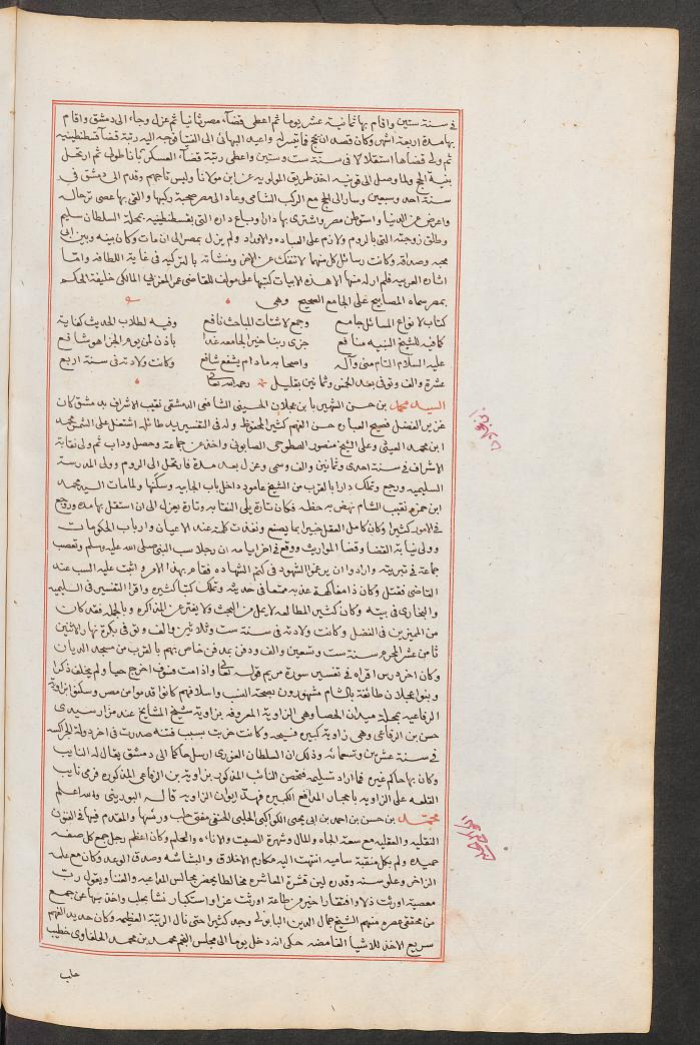 في سنة ستين واقام بها ثمانية عشر يوما ثم اعطي قضاء مصر ثانيا ثم عزل وجاء الى دمشق واقام
بها مدة اربعة اشهر وكان قصد ان يحج فاتيسر له واعيد اليها الى القضا فوجه اليه رتبة قضا قسطنطينية
ثم ولي قضاها استقلالا في سنة ست وستين واعطي رتبة قضاء العسكر باناطولي ثم ارتحل
بنية الحج ولما وصل الى قونيه اخذ طريق المولويه عن ابن مولانا ولبس تاجهم وقدم الى دمشق في
سنة احد وسبعين وسار الى الحج مع الركب الشامي وعاد الى مصر صحبة ركبها والقى بها عصى ترحاله
واعرض عن الدنيا واستوطن مصر واشترى بها دارا وباع داره التي بقسطنطينيه بمحلة السلطان سليم
وطلق زوجته التي بالروم ولازم على العباده والاوراد ولم يزل بمصر الى ان مات وكان بينه وبين ابي
محبه وصداقه وكانت رسائل كل منهما لا تنفك عن الاخر ومنشاته بالتركيه في غاية اللطافه واما
اشاره العربيه فلم ار له منها الا هذه الابيات كتبها على مولف للقاضي عمر المغربي المالكي خليفة الحكم
بمصر سماه المصابيح على الجامع الصحيح وهي
كتاب لانواع المسائل جامع وجمع لاشتات المباحث نافع وفيه لطلاب الحديث كفاية
كافيه للشيخ النبيه منافع جزى ربنا خيرا لجامعه غدا باذن لمن يوم الجزا هو شافع
عليه السلام التام مني وآله واصحابه ما دام يشفع شافع وكانت ولادته في سنة اربع
عشرة والف وتوفي بعد الخمس وثمانين بقليل رحمه الله تعالى
السيد محمد بن حسن الشهير بابن عجلان الحسيني الشافعي الدمشقي نقيب الاشراف بدمشق كان
غزير الفضل فصيح العباره حسن الفهم كثير المحفوظ وله في التفسير يد طائله اشتغل على الشمس محمد
ابن محمد العيثي وعلى الشيخ منصور السطوحي الصابوني واخذ عن جماعة وحصل وداب ثم ولي نقابة
الاشراف في سنة احدى وثمانين والف وسمي وعزل بعد مدة فارتحل الى الروم وولي المدرسة
السليميه ورجع وتملك دارا بالقرب من الشيخ عامود داخل باب الجابيه وسكنها ولما مات السيد محمد
ابن حمزه نقيب الشام نهض به حظه فكان تارة يلي النقابه وتارة يعزل الى ان استقل بها مده وروجع
في الامور كثيرا وكان كامل العقل خبيرا بما يصنع ونفذت كلمته عند الاعيان وارباب الحكومات
وولي نيابة القضا وقضا المواريث ووقع في اخر ايامه ان رجلا سب النبي صلى الله عليه وسلم وتعصب
جماعة في تبريته وارادوا ان يرغموا الشهود في كتم الشهاده فقام بهذا الامر واثبت عليه السب عند
القاضي فقتل وكان ذا مفاكهة عذبه ممتعا في حديثه وتملك كتبا كثيره واقرا التفسير في السليميه
والبخاري في بيته وكان كثير المطالعه لا يمل من البحث ولا يفتر عن المذاكره وبالجمله فقد كان
من المميزين في الفضل وكانت ولادته في سنة ست وثلاثين والف وتوفي في بكرة نهار الاثنين
ثامن عشر المحرم سنة ست وتسعين والف ودفن بمدفن خاص بهم بالقرب من مسجد الذبان
وكان اخر درس اقراه في تفسير سورة مريم قوله تعالى واذا ما مت فسوف اخرج حيا ولم يخلف ذكرا
وبنوا عجلان طائفة بالشام مشهورون بصحة النسب واسلافهم كانوا قدموا من مصر وسكنوا بزاوية
الرفاعيه بمحلة ميدان الحصا وهي الزاوية المعروفه بزاوية شيخ المشايخ عند مزار سيدي
حسن بن الرفاعي وهي زاوية كبيره فسيحه وكانت خربت بسبب فتنة صدرت في اخر دولة الجراكسه
في سنة عشر بن وتسعمائه وذلك ان السلطان الغوري ارسل حاكما الى دمشق يقال له النايب
وكان بها حاكم غيره فما اراد تسليمه فتحصن النائب المذكور بزاوية بن الرفاعي المذكوره فرمى نايب
القلعه على الزاويه باحجار المدافع الكبيره فهدت ايوان الزاويه قاله البوريني والله اعلم
محمد بن حسن بن احمد بن ابي يحيى الكواكبي الحلبي الحنفي مفتي حلب ورئيسها والمقدم فيها في الفنون
النقليه والعقليه مع سعة الجاه والمال وشهرة الصيت والاناه والحلم وكان اعظم رجل جمع كل صفه
حميده ولم يكل منقبة ساميه انتهت اليه مكارم الاخلاق والبشاشه وصدق الوعد وكان مع علمه
الزاخر وعلو سنه وقدره لين قشرة المعاشره مخالطا يحضر مجالس المداعبه والغنا ويقول رب
معصية اورثت ذلا وافتقارا خير من طاعة اورثت عزا واستكبارا نشا بحلب واخذ بها عن جمع
من محققي عصره منهم الشيخ جمال الدين البابولي وجد كثيرا حتى نال الرتبة العظيمه وكان حديد الفهم
سريع الاخذ للاشيا الغامضه حكى انه دخل يوما الى مجلس النجم محمد بن محمد الحلفاوي خطيب
حلب